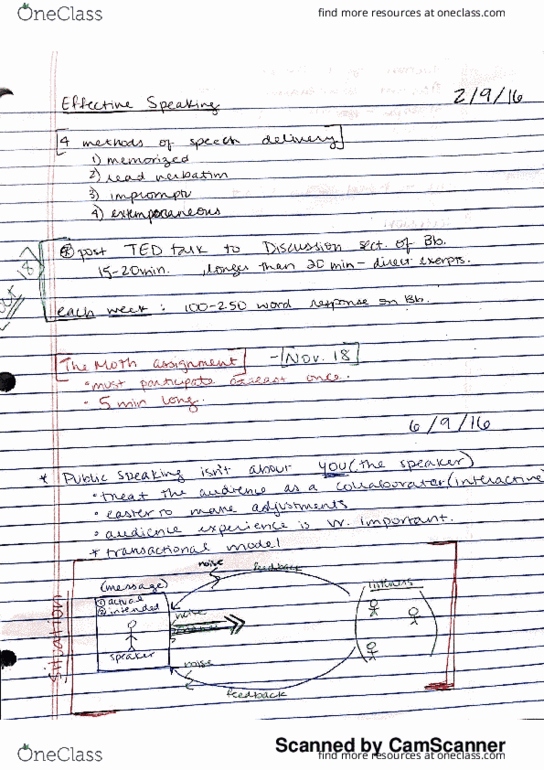 OneClass
find more resources at oneclass.com
Effective Speaking
2/9/16
4 methods of speech delivery
1) memorized
2) read verbatim
3) impromptu
4) extemporaneous
post TED talk to Discussion sect. of Bb.
15-20min. longer than 20 min - direct exerpts.
each week: 100-250 word response on Bb.
The Moth assignment - Nov. 18
• must participate atleast once.
• 5 min long.
6/9/16
* Public speaking isn't about you (the speaker)
• treat the audience as a collaborator (interactive)
• easier to make adjustments
• audience experience is v. important.
* transactional model
situation
noise
feedback
(message)
① actual
② intended
noise
speaker
noise
feedback
Scanned by CamScanner
OneClass
find more resources at oneclass.com